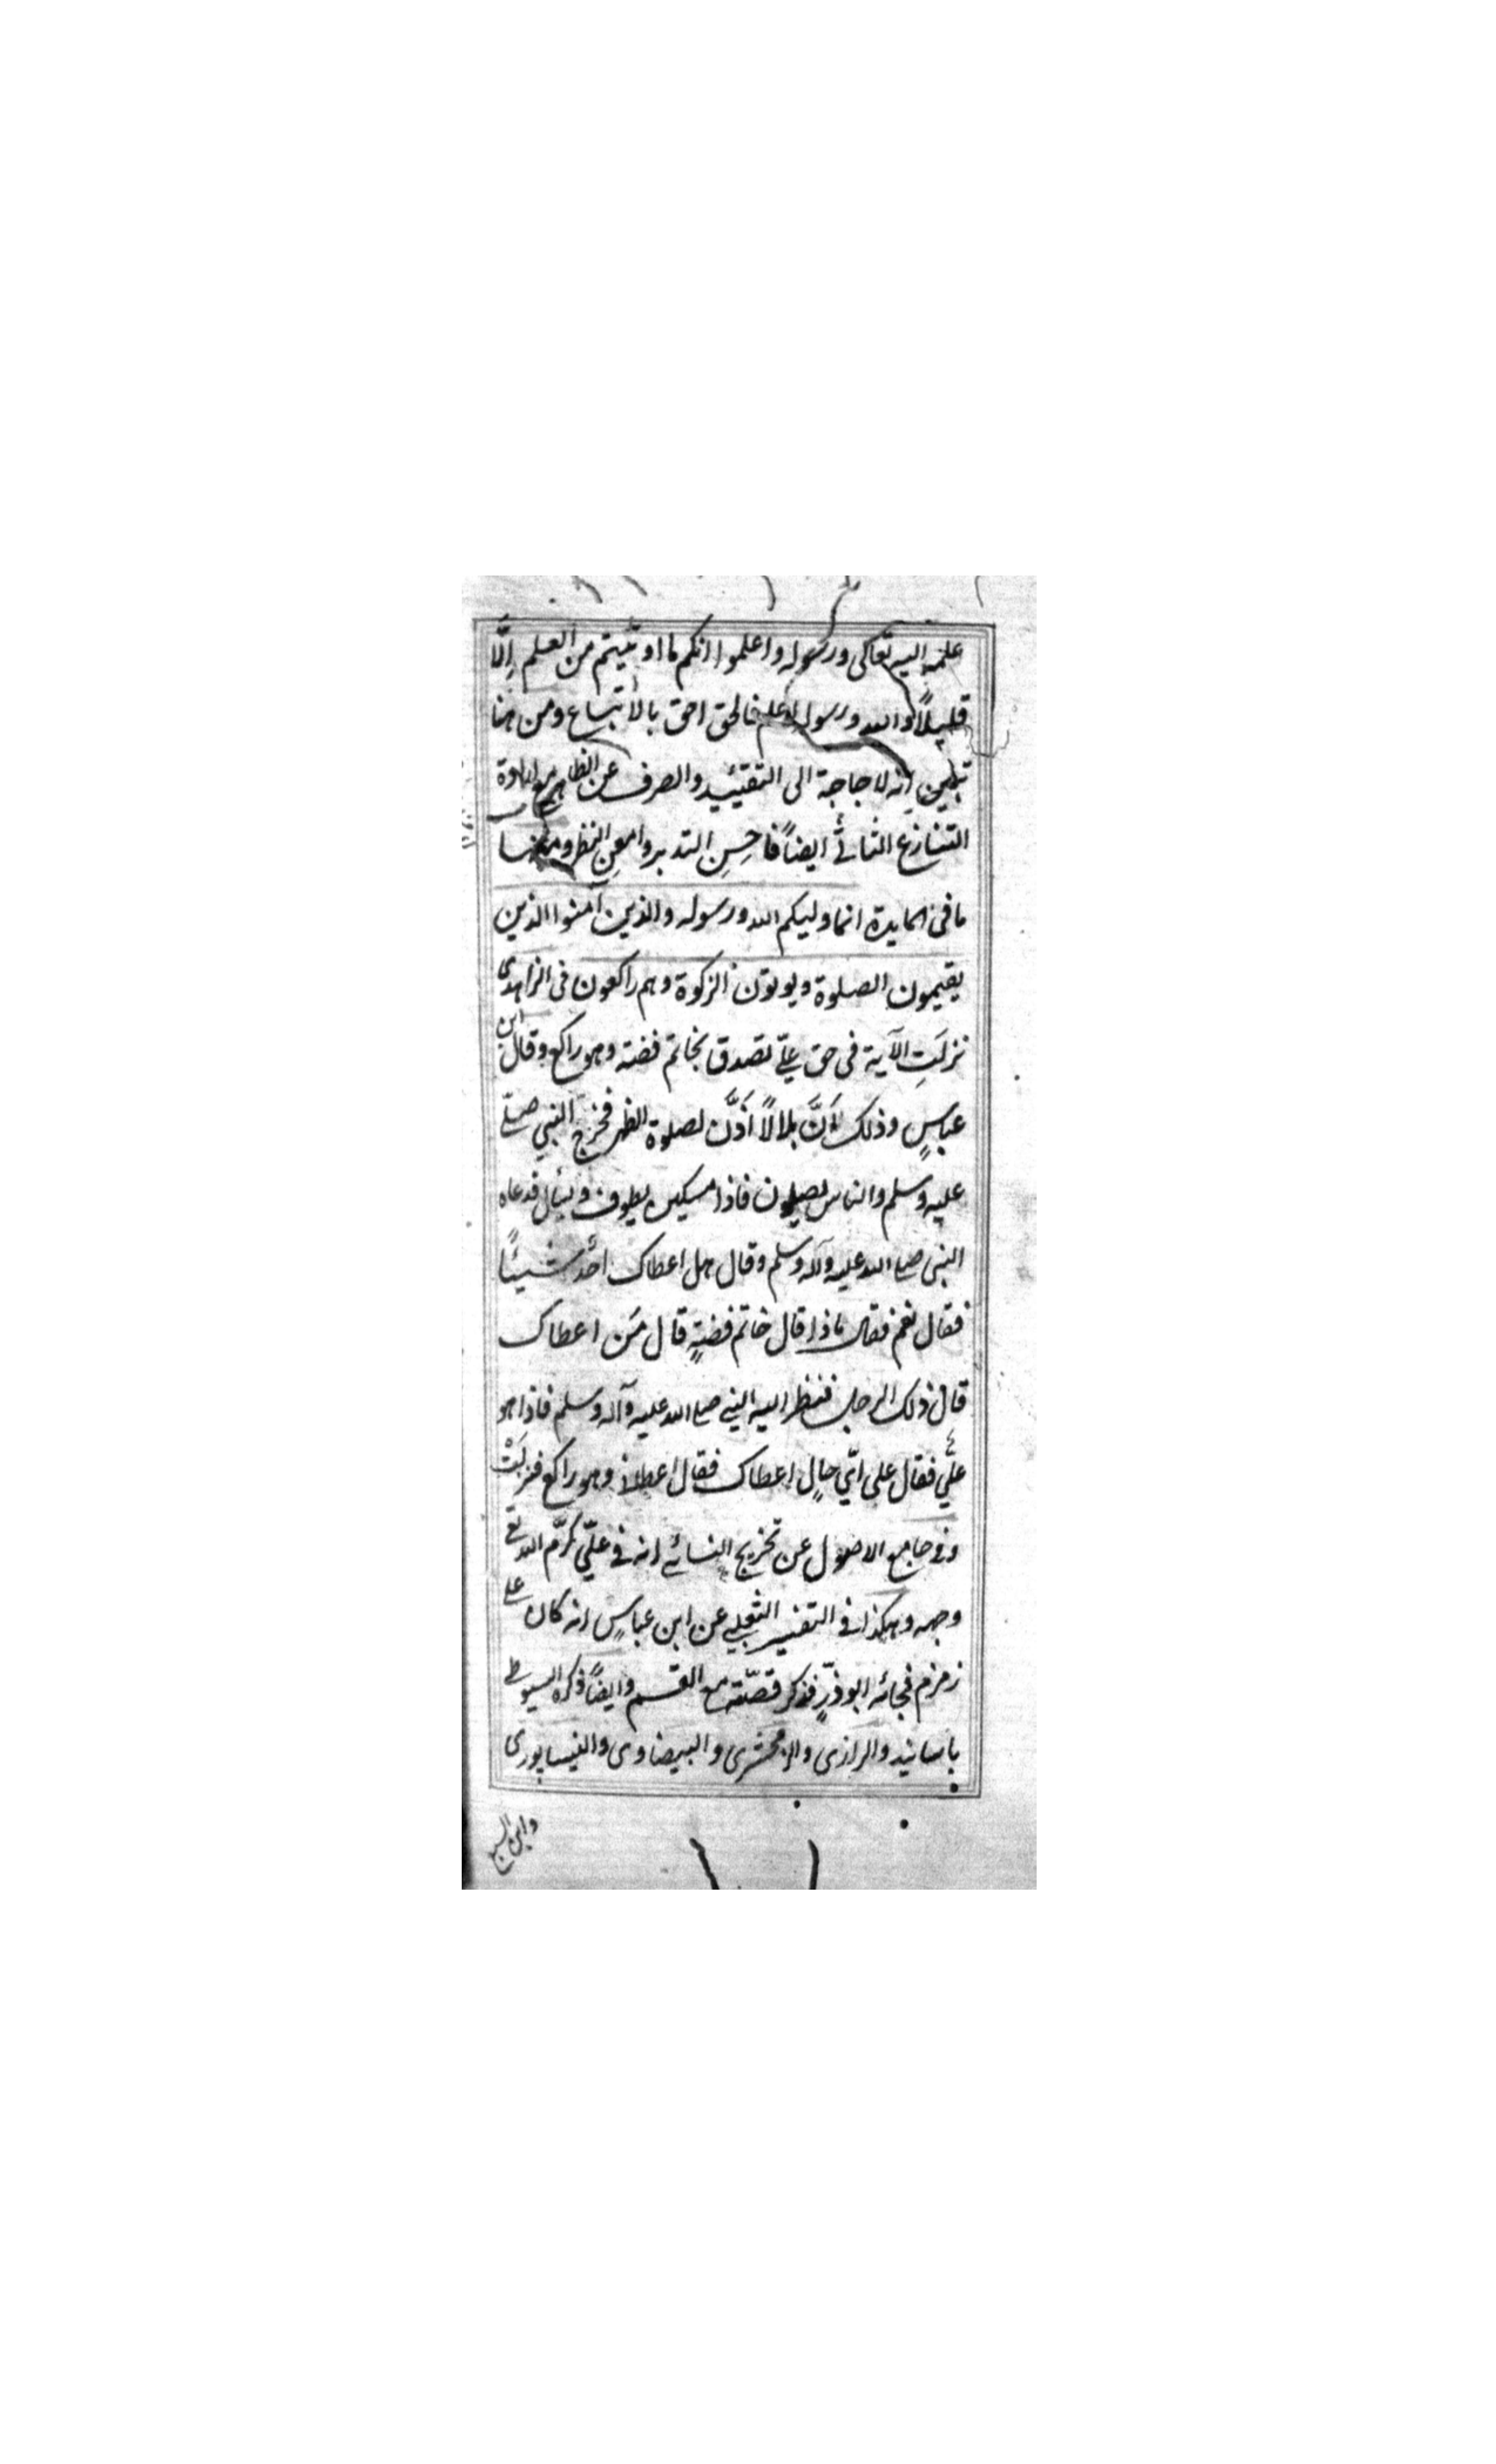 علمه اليه تعالى ورسوله واعلموا انكم ما اوتيتم من العلم اِلَّا
قليلاً والله ورسوله اعلم فالحق احق بالأتباع ومن هنا
تبين انه لا حاجة الى التقئيد والصرف عن الظاهر
التنازع الثانى ايضاً فاحسِنِ التدبر وامعِنِ النظر ومنها
ما فى المايدة انما وليكم الله ورسوله والذين آمنوا الذين
يقيمون الصلوة ويوتون الزكوة وهم راكعون فى الزاهدى
نزلَتِ الآية فى حق علىّ تصدق بخاتم فضة وهو راكع وقال ابن
عباسٍ وذلك لأنَّ بلالاً أَذَّن لصلوة الظهر فخرج النبي صلّے
عليه وسلم والناس يصلون فاذا مسكين يطوف ويسأل فدعاه
النبى صلے الله عليه وآله وسلم وقال هل اعطاك احدٌ شيئاً
فقال نعم فقال ماذا قال خاتم فضةٍ قال مَن اعطاك
قال ذلك الرجل فنظر اليه النبي صلے الله عليه وآله وسلم فاذا هو
علىّ فقال على اىّ حالٍ اعطاك فقال اعطانى وهو راكع فنزلَتْ
وفى جامع الاصول عن تخريج النسائے انه فى علىّ كرّم الله تع
وجهه وهكذا فى التفسير الثعلبي عن ابن عباسٍ انه كان علے
زمزم فجائه ابو ذرٍّ فذكر قصّته مع القسم وايضاً ذكره السيوطى
باسانيد والرازى والزمخشرى والبيضاوى والنيسابورى